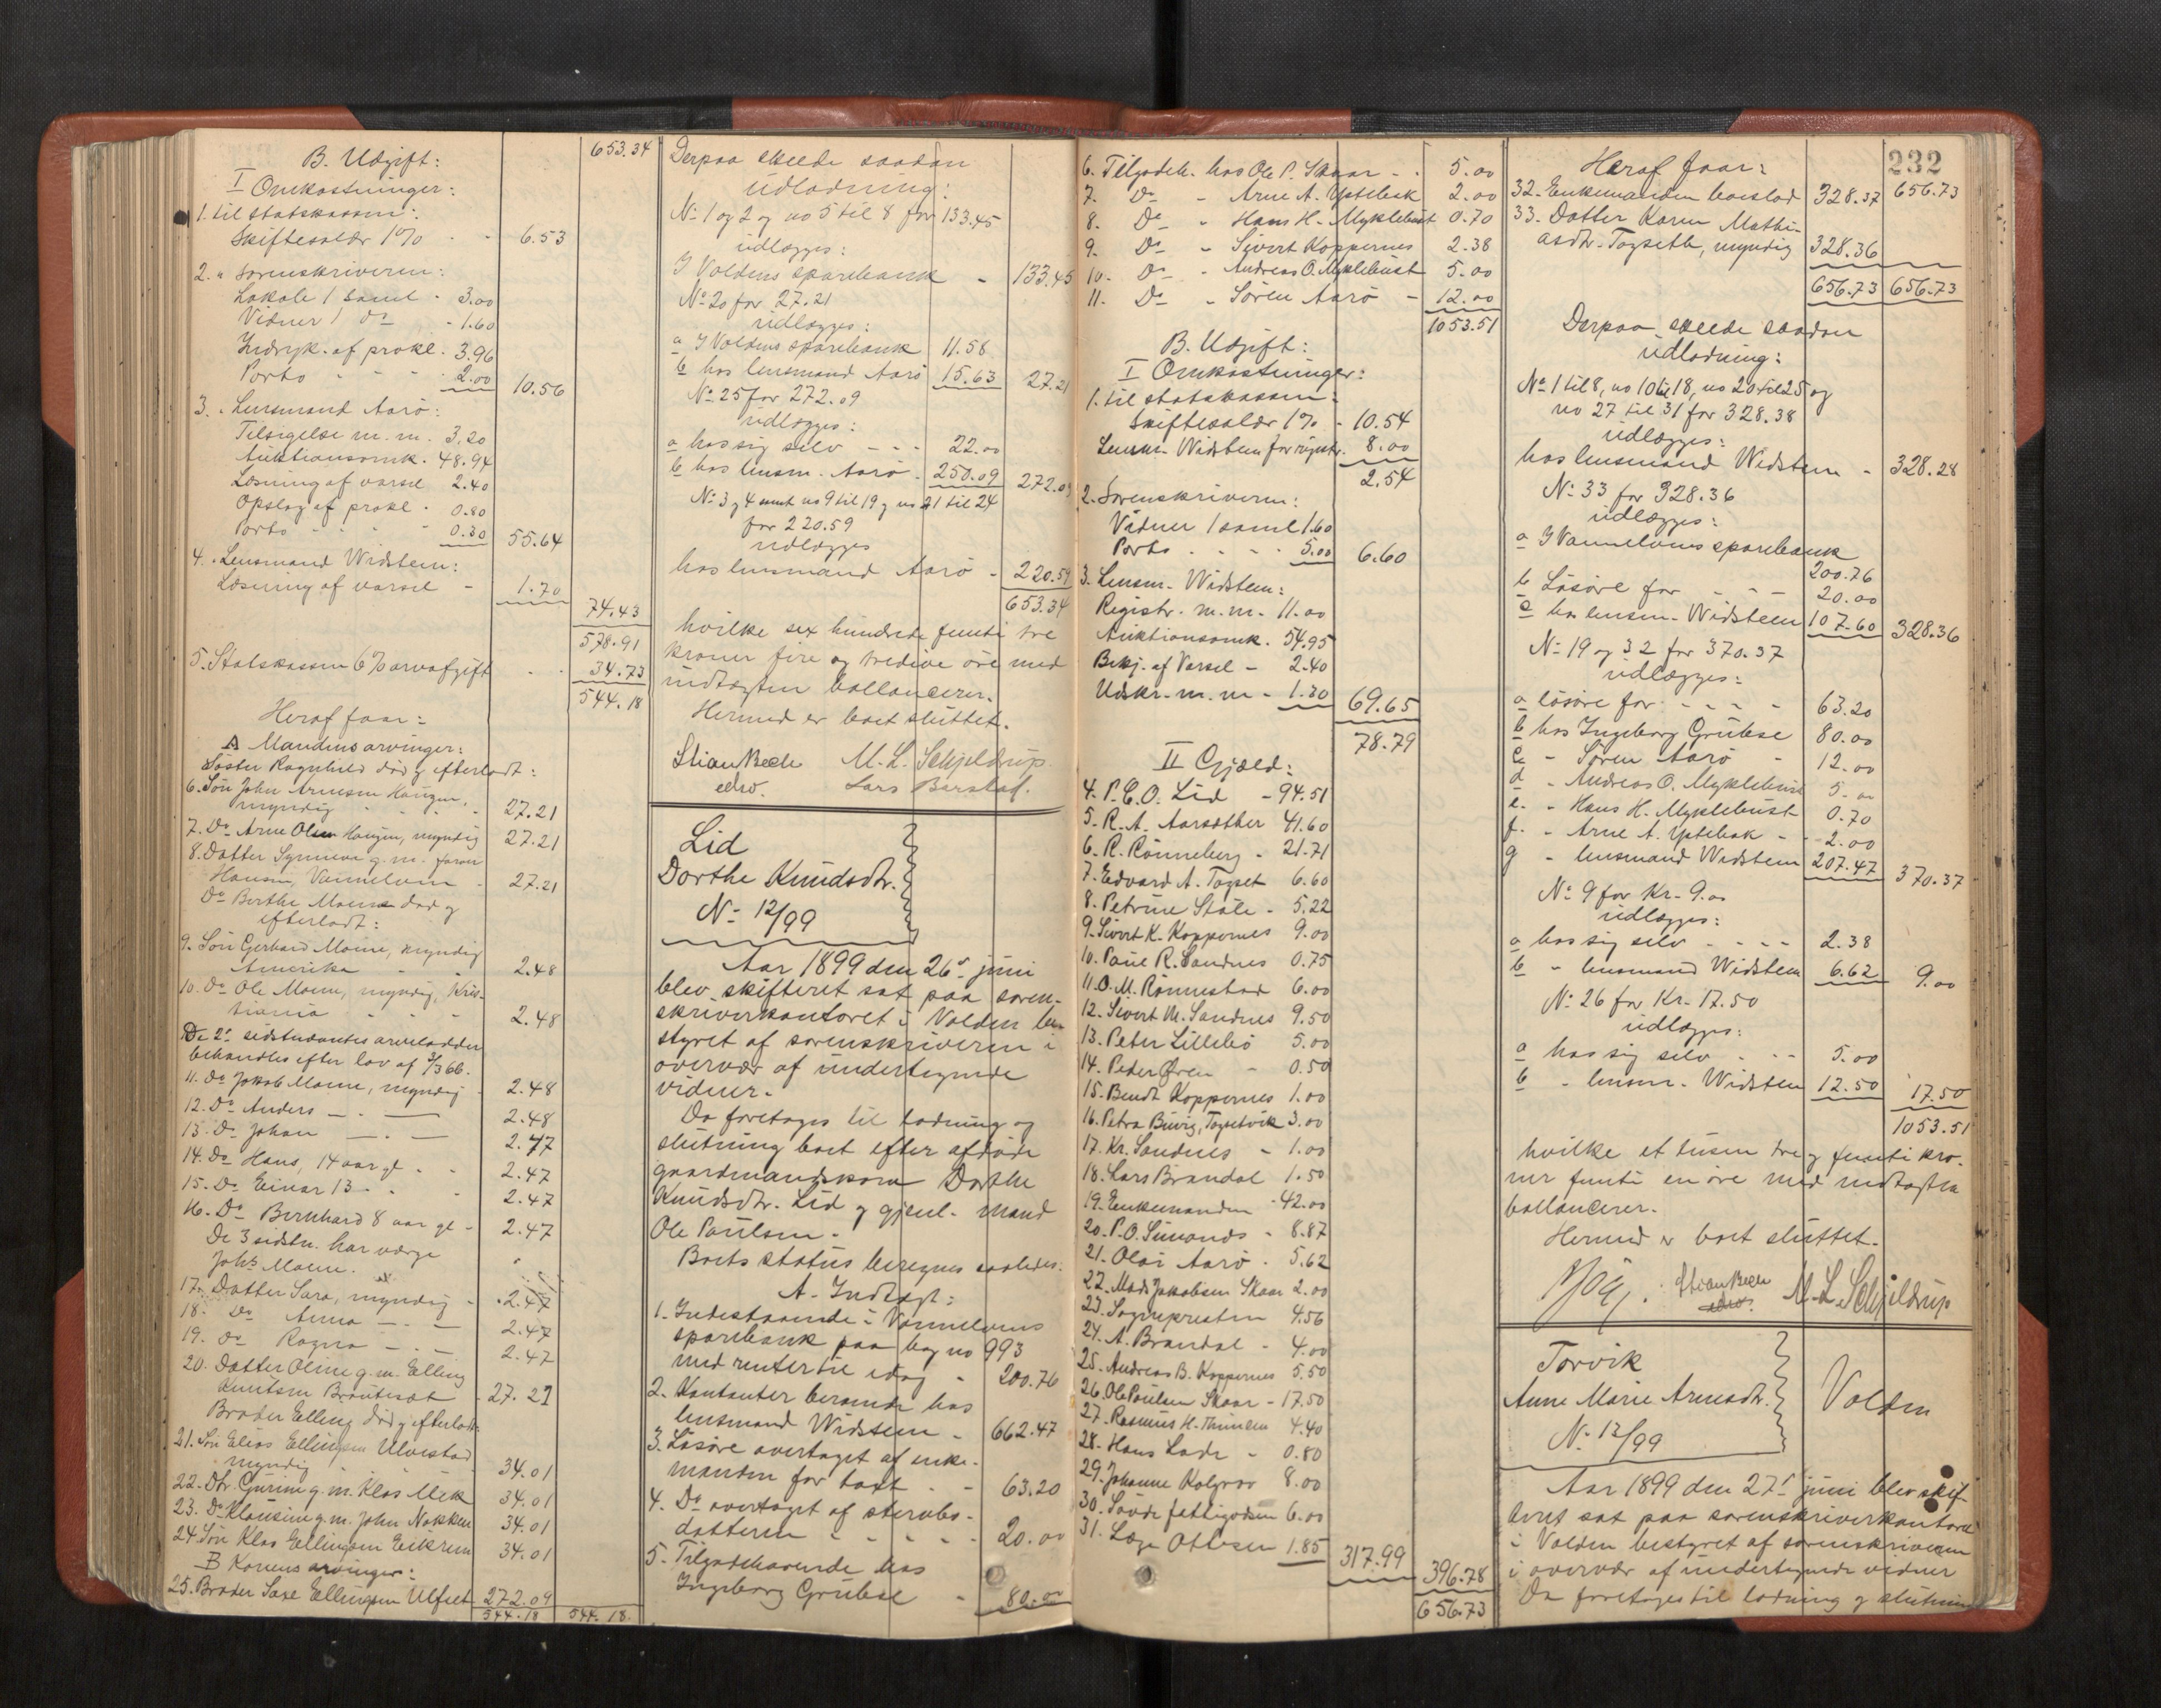 653.34
B. Udgift:
I Omkostninger:
1. til statskassen:
Skiftesalær 1% - - 6.53
2. " sorenskriveren:
Lokale 1 saml - 3.00
Vidner 1 do - 1.60
Indryk. af prokl. 3.96
Porto - - - 2.00 10.56
3. " Lensmand Aarö:
Tilsigelse m. m. 3.20
Auktionsomk. 48.94
Læsning af varsel 2.40
Opslag af prokl. 0.80
Porto - - - 0.30 55.64
4. " Lensmand Widsteen:
Læsning af varsel - 1.70
74.43
578.91
5. Statskassen 6% arveafgift - - 34.73
544.18
Heraf faar:
A Mandens arvinger:
Søster Ragnhild død og efterladt:
6. Søn John Arnesen Haugen,
myndig - - 27.21
7. Do Arne Olsen Haugen, myndig 27.21
8. Datter Synneva g. m.
Hansen, Vannelven - 27.21
Do Berthe Moene død og
efterladt:
9. Søn Gerhard Moene, myndig
Amerika - - 2.48
10. Do Ole Moene, myndig, Kris-
tiania - - - 2.48
De 2de sidstnævntes arvelodder
behandles efter lov af 3/3 66.
11. Do Jakob Moene, myndig - 2.48
12. Do Anders — . — 2.48
13. Do Johan — . — 2.47
14. Do Hans, 14 aar gl - - 2.47
15. Do Einar 13 - . - 2.47
16. Do Bernhard 8 aar gl - 2.47
De 3 sidstn. har værge
Johs Moene.
17. Datter Sara, myndig - 2.47
18. Do Anna — . — 2.47
19. Do Ragna — . — 2.47
20. Datter Oline g. m. Elling
Knutsen Brautesæt - 27.21
Broder Elling død og efterladt:
21. Søn Elias Ellingsen Ulvestad
myndig - 34.01
22. Dtr. Gurine g. m. Klas Mek 34.01
23. Do Klausine g. m. John Nakken 34.01
24. Søn Klas Ellingsen Eikrem 34.01
B Konens arvinger:
25. Broder Saxe Ellingsen Ulfset 272.09
544.18 544.18.
Derpaa skeede saadan
udlodning:
No 1 og 2 og no 5 til 8 for 133.45
udlægges:
I Voldens sparebank - 133.45
No 20 for 27.21
udlægges:
a I Voldens sparebank 11.58
b hos lensmand Aarö 15.63 27.21
No 25 for 272.09
udlægges:
a hos sig selv - - - 22.00
b hos lensm. Aarö - 250.09 272.09
No 3 og 4 samt no 9 til 19 og no 21 til 24
for 220.59
udlægges
hos lensmand Aarö - 220.59
653.34
hvilke sex hundrede femti tre
kroner fire og tredive øre med
indtægten ballancerer.
Hermed er boet sluttet.
Stian Bech M. L. Schjeldrup.
edsv. Lars Barstad.
Lid
Dorthe Knudsdtr.
No 12/99
Aar 1899 den 26de juni
blev skifteret sat paa soren-
skriverkontoret i Volden be-
styret af sorenskriveren i
overvær af undertegnede
vidner.
Da foretoges til lodning og
slutning boet efter afdøde
gaardmandskone Dorthe
Knudsdtr. Lid og gjenl. mand
Ole Paulsen.
Boets status beregnes saaledes:
A. Indtægt:
1. Indestaaende i Vannelvens
sparebank paa bog no 993
med renter til idag - 200.76
2. Kontanter beroende hos
lensmand Widsteen - 662.47
3. Løsøre overtaget af enke-
manden for taxt - - 63.20
4. Do overtaget af stervbo-
datteren - - - - - 20.00
5. Tilgodehavende hos
Ingeborg Grubse - 80.00
6. Tilgodeh. hos Ole P. Skaar - . 5.00
7. Do - Arne A. Yttebak 2.00
8. Do - Hans H. Myklebust 0.70
9. Do - Sivert Koppernes 2.38
10. Do - Andreas O. Myklebust 5.00
11. Do - Søren Aarö - 12.00
1053.51
B. Udgift:
I Omkostninger:
1. til statskassen:
Skiftesalær 1% - 10.54
Lensm. Widsteen for registr. 8.00
2.54
2. Sorenskriveren:
Vidner 1 saml 1.60
Porto . - - - 5.00 6.60
3. Lensm. Widsteen:
Registr. m. m. 11.00
Auktionsomk. 54.95
Bekj. af Varsel - 2.40
Udskr. m. m - 1.30 69.65
78.79
II Gjæld:
4. P. C. O. Lid - 94.51
5. R. A. Aarsæther 41.60
6. R. Rønneberg - 21.71
7. Edvard A. Togset 6.60
8. Petrine Ståle - 5.22
9. Sivert K. Koppernes 9.00
10. Paul R. Sandnes 0.75
11. O. M. Rønnestad 6.00
12. Sivert M. Sandnes 9.50
13. Peter Lillebö 5.00
14. Peder Øren - 0.50
15. Bendt Koppernes 1.00
16. Petra Buvig, Togsetvik 3.00
17. Kr. Sandnes - 1.00
18. Lars Brandal 1.50
19. Enkemanden - 42.00
20. P. O. Simonds - 8.87
21. Olai Aarö - 5.62
22. Mads Jakobsen Skaar 2.00
23. Sognepresten 4.56
24. A. Brandal - 4.00
25. Andreas B. Koppernes 5.50
26. Ole Paulsen Skaar - 17.50
27. Rasmus H. Thunem 4.40
28. Hans Lade - 0.80
29. Johanne Kolgrov 8.00
30. Søvde fattigvæsen 6.00
31. Læge Ottesen 1.85 317.99 396.78
656.73
232
Heraf faar: 656.73
32. Enkemanden boeslod 328.37
33. Datter Karen Mathi-
asdtr. Togseth, myndig 328.36
656.73 656.73
Derpaa skeede saadan
udlodning:
No 1 til 8, no 10 til 18, no 20 til 25 og
no 27 til 31 for 328.38
udlægges:
hos lensmand Widsteen - 328.28
No 33 for 328.36
udlægges:
a I Vannelvens sparebank
200.76
b Løsøre for - - - 20.00
c hos lensm. Widsteen 107.60 328.36
No 19 og 32 for 370.37
udlægges:
a løsøre for - - - - 63.20
b hos Ingeborg Grubse 80.00
c - Søren Aarö - 12.00
d - Andreas O. Myklebust 5.00
e. - Hans H. Myklebust 0.70
f. - Arne A. Yttebak - - 2.00
g - lensmand Widsteen 207.47 370.37
No 9 for Kr. 9.00
udlægges:
a hos sig selv - - - - 2.38
b - lensmand Widsteen 6.62 9.00
No 26 for Kr. 17.50
udlægges:
a hos sig selv - - - 5.00
b - lensm. Widsteen 12.50 17.50
1053.51
hvilke et tusen tre og femti kro-
ner femti en øre med indtægten
ballancerer.
Hermed er boet sluttet.
Stian Bech M. L. Schjeldrup
edsv.
Torvik
Anne Marie Arnesdtr.
No 13/99
Volden
Aar 1899 den 27de juni blev skif-
teret sat paa sorenskriverkontoret
i Volden bestyret af sorenskriveren
i overvær af undertegnede vidner
Da foretoges til lodning og slutning